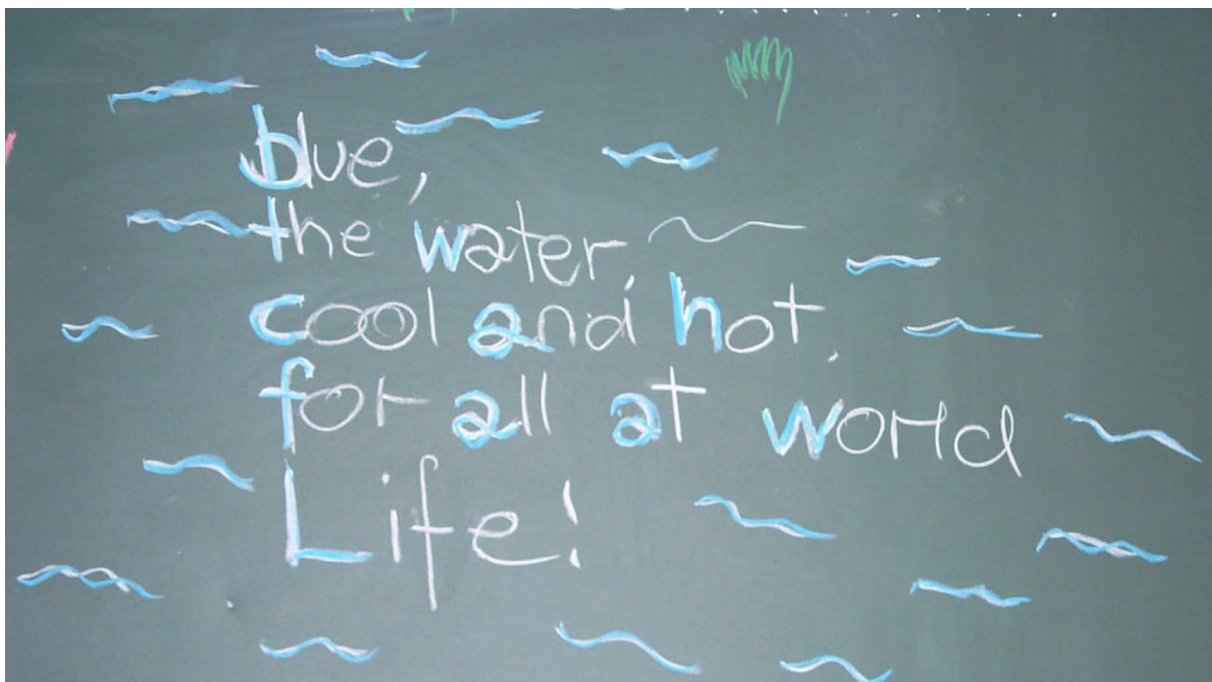 blue,
the water,
cool and hot.
for all at world
Life!